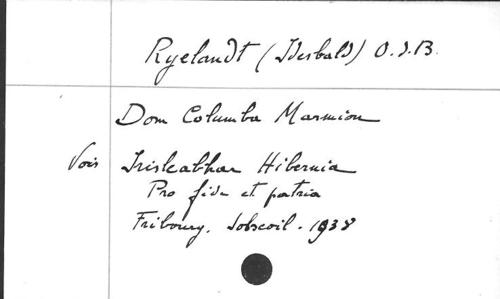 Ryelandt (Idesbald) O.S.B.
Dom Columba Marmion
Vois Irisleabhar Hibernia
Pro fide et patria
Fribourg. Lobscoil. 1938